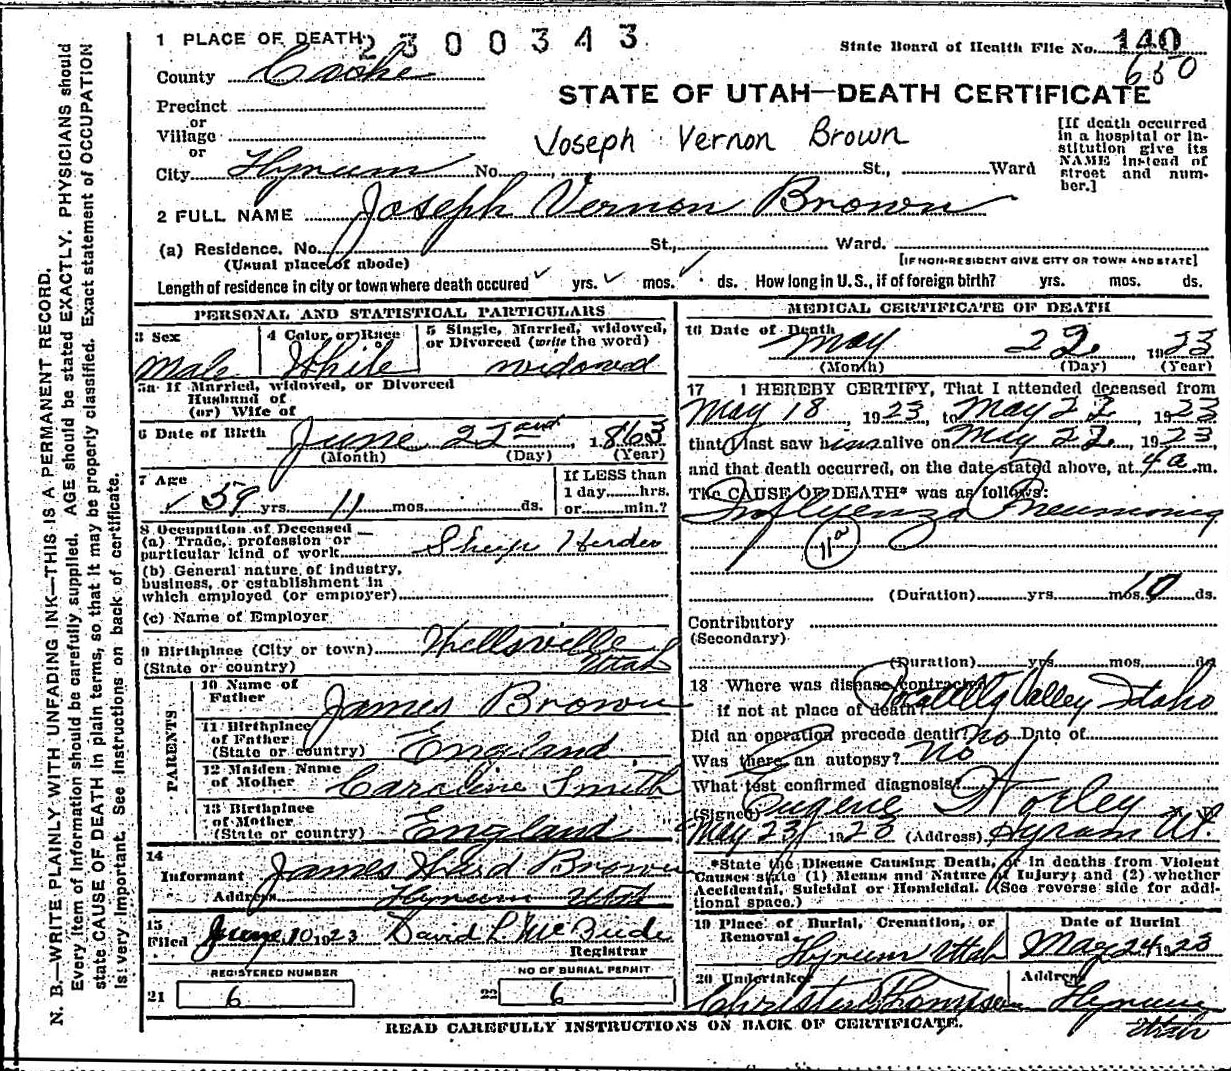 1 PLACE OF DEATH
2300343
State Board of Health File No. 140
650
County Cache
STATE OF UTAH—DEATH CERTIFICATE
Precinct
or
Village
or
City Hyrum No. St., Ward
Joseph Vernon Brown
[If death occurred in a hospital or institution give its NAME instead of street and number.]
2 FULL NAME Joseph Vernon Brown
(a) Residence. No. St., Ward.
(Usual place of abode)
[IF NON-RESIDENT GIVE CITY OR TOWN AND STATE]
Length of residence in city or town where death occured yrs. mos. ds. How long in U.S., if of foreign birth? yrs. mos. ds.
PERSONAL AND STATISTICAL PARTICULARS
3 Sex
Male
4 Color or Race
White
5 Single, Married, widowed, or Divorced (write the word)
widowed
5a If Married, widowed, or Divorced
Husband of
(or) Wife of
6 Date of Birth June 22nd, 1863
(Month) (Day) (Year)
7 Age
59 yrs 11 mos. ds.
If LESS than
1 day hrs.
or min.?
8 Occupation of Deceased
(a) Trade, profession or
particular kind of work Sheep Herder
(b) General nature of industry,
business, or establishment in
which employed (or employer)
(c) Name of Employer
9 Birthplace (City or town) Wellsville
(State or country) Utah
PARENTS
10 Name of
Father James Brown
11 Birthplace
of Father
(State or country) England
12 Maiden Name
of Mother Caroline Smith
13 Birthplace
of Mother
(State or country) England
14
Informant James Brown
Address Hyrum Utah
15
Filed June 10 1923 David McBride
Registrar
REGISTERED NUMBER
21 6
NO OF BURIAL PERMIT
22 6
MEDICAL CERTIFICATE OF DEATH
16 Date of Death
May 22, 1923
(Month) (Day) (Year)
17 I HEREBY CERTIFY, That I attended deceased from
May 18 1923, to May 22, 1923
that I last saw him alive on May 22, 1923,
and that death occurred, on the date stated above, at 4 a m.
The CAUSE OF DEATH* was as follows:
Influenza Pneumonia
11a
(Duration) yrs. mos. 10 ds.
Contributory
(Secondary)
(Duration) yrs. mos. ds
18 Where was disease contracted
if not at place of death? Valley Idaho
Did an operation precede death? No Date of
Was there an autopsy? No
What test confirmed diagnosis?
(Signed) Eugene Worley
May 23 1923 (Address) Hyrum Ut.
*State the Disease Causing Death, or in deaths from Violent
Causes state (1) Means and Nature of Injury; and (2) whether
Accidental, Suicidal or Homicidal. (See reverse side for addi-
tional space.)
19 Place of Burial, Cremation, or
Removal
Hyrum Utah
Date of Burial
May 24 1923
20 Undertaker
Thompson
Address
Hyrum
Utah
READ CAREFULLY INSTRUCTIONS ON BACK OF CERTIFICATE.
N. B.—WRITE PLAINLY WITH UNFADING INK—THIS IS A PERMANENT RECORD.
Every item of information should be carefully supplied. AGE should be stated EXACTLY. PHYSICIANS should
state CAUSE OF DEATH in plain terms, so that it may be properly classified. Exact statement of OCCUPATION
is very important. See instructions on back of certificate.